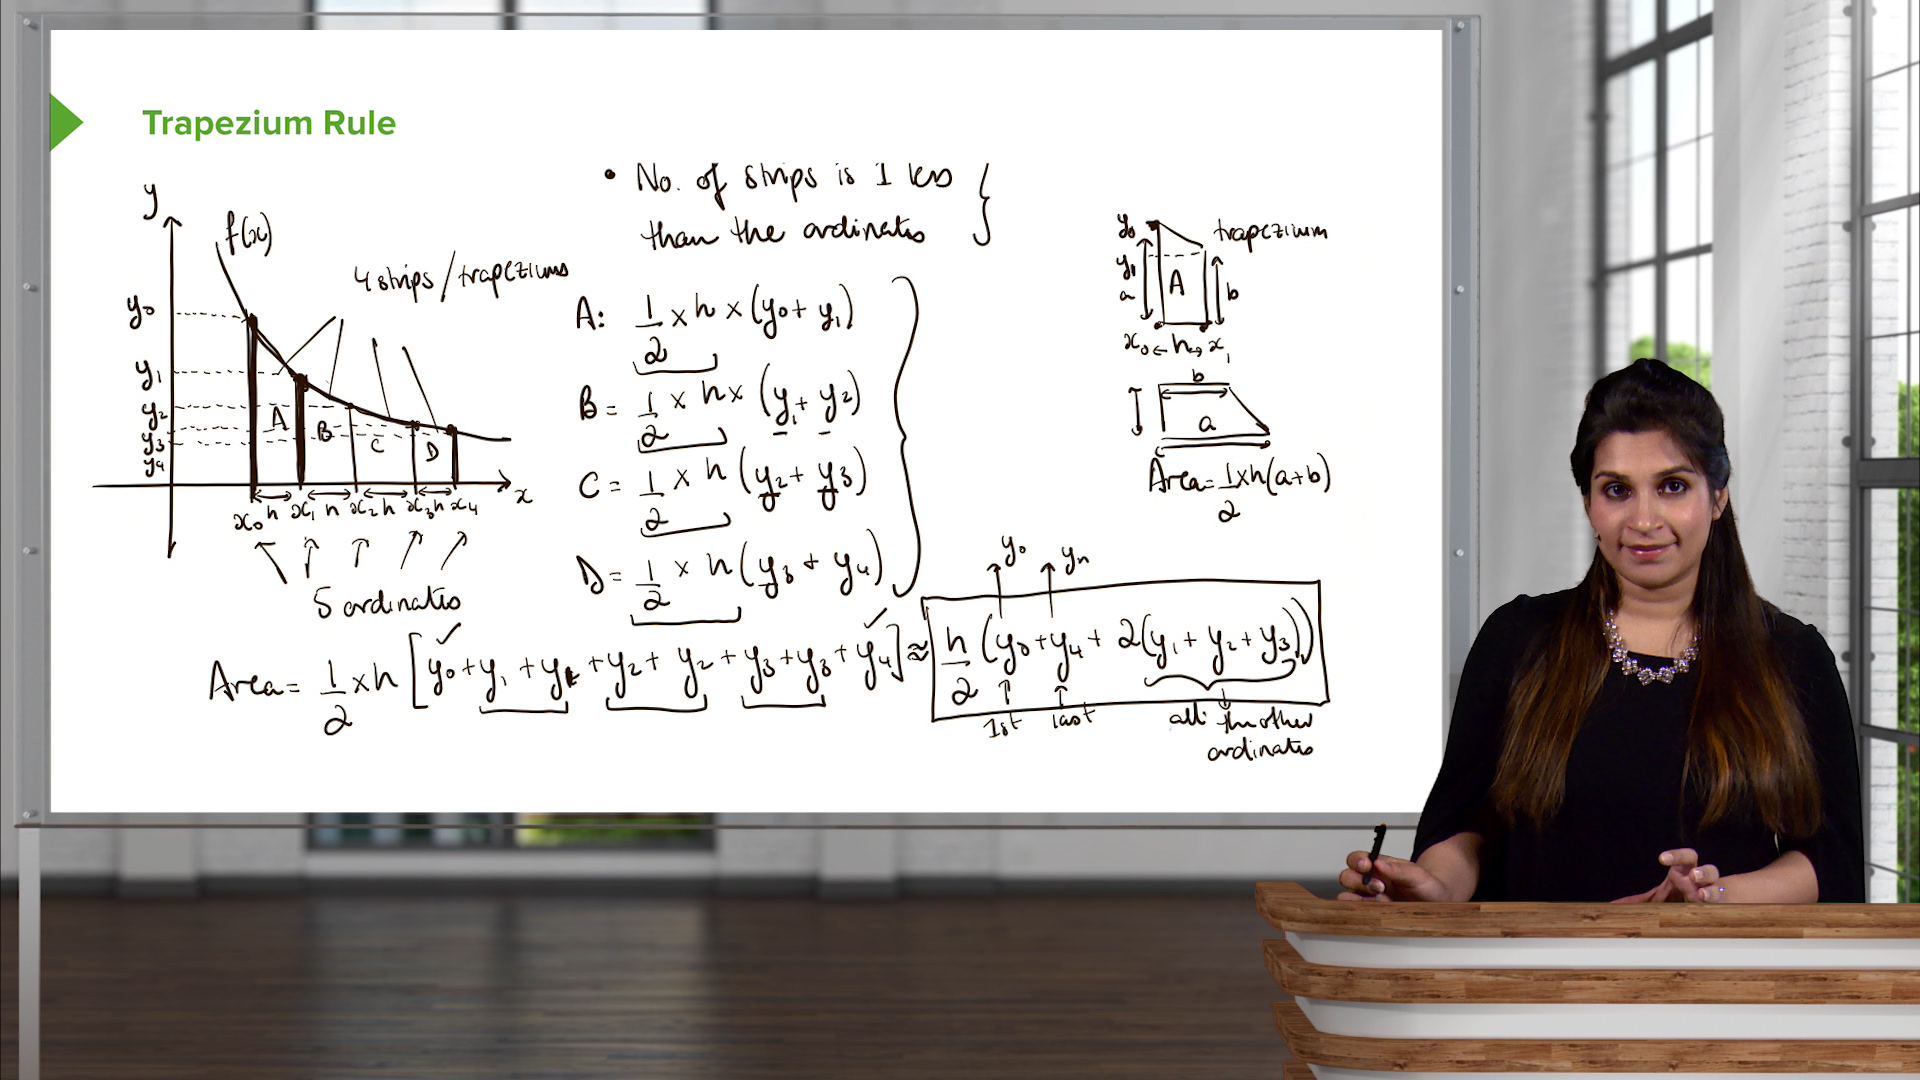 Trapezium Rule
• No. of strips is 1 less
than the ordinates
y
f(x)
4 strips / trapeziums
y₀
y₁
y₂
y₃
y₄
A
B
C
D
x₀ h x₁ h x₂ h x₃ h x₄
x
5 ordinates
A: 1/2 × h × (y₀ + y₁)
B = 1/2 × h × (y₁ + y₂)
C = 1/2 × h (y₂ + y₃)
D = 1/2 × h (y₃ + y₄)
y₀
trapezium
y₁
a
A
b
x₀ ← h → x₁
b
a
Area = 1/2 × h (a + b)
y₀ yₙ
Area = 1/2 × h [y₀ + y₁ + y₁ + y₂ + y₂ + y₃ + y₃ + y₄] ≈ h/2 (y₀ + y₄ + 2(y₁ + y₂ + y₃))
1st last all the other
ordinates